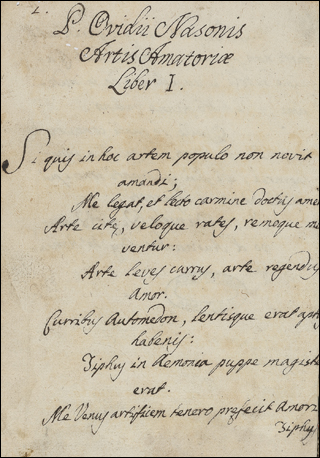 P. Ovidii Nasonis
Artis Amatoriæ
Liber I.
Si quis in hoc artem populo non novit
amandi;
Me legat, et lecto carmine doctus ame
Arte citę, veloque rates, remoque mo
ventur:
Arte leves currus, arte regendus
Amor.
Curribus Automedon, lentisque erat apt
habenis:
Tiphys in Aemonia puppe magiste
erat.
Me Venus artificem tenero præfecit Amori
Tiphys